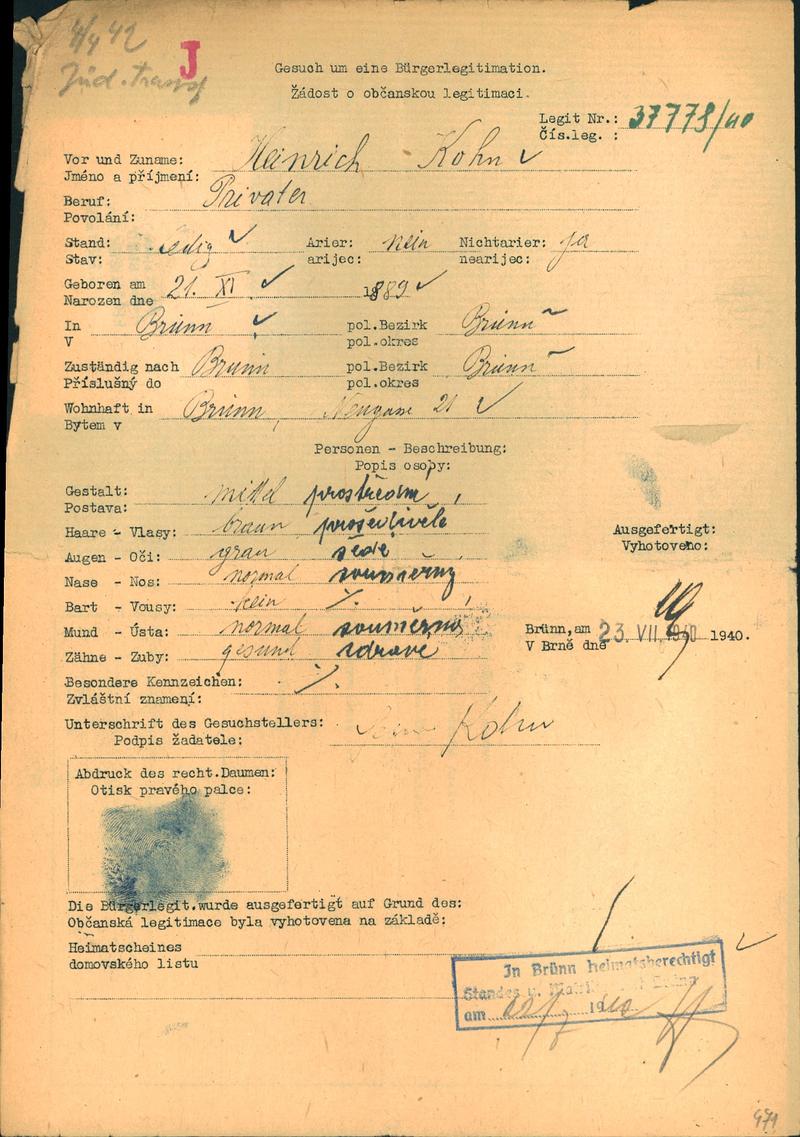 4/4 42
J
Jüd. transp
Gesuch um eine Bürgerlegitimation.
Žádost o občanskou legitimaci.
Legit Nr.: 37778/40
Čís.leg. :
Vor und Zuname: Heinrich Kohn
Jméno a příjmení:
Beruf: Privater
Povolání:
Stand: ledig Arier: nein Nichtarier: ja
Stav: arijec: nearijec:
Geboren am 21. XI 1889
Narozen dne
In Brünn pol.Bezirk Brünn
V pol.okres
Zuständig nach Brünn pol.Bezirk Brünn
Příslušný do pol.okres
Wohnhaft in Brünn, Neugasse 21
Bytem v
Personen - Beschreibung:
Popis osoby:
Gestalt: mittel prostřední
Postava:
Haare - Vlasy: braun prošedivělé
Augen - Oči: grau šedé
Nase - Nos: normal souměrný
Bart - Vousy: kein /.
Mund - Ústa: normal souměrná
Zähne - Zuby: gesund zdravé
Ausgefertigt:
Vyhotoveno:
Brünn, am 23. VII. 1940 1940.
V Brně dne
Besondere Kennzeichen: /.
Zvláštní znamení:
Unterschrift des Gesuchstellers: Kohn
Podpis žadatele:
Abdruck des recht.Daumen:
Otisk pravého palce:
Die Bürgerlegit.wurde ausgefertigt auf Grund des:
Občanská legitimace byla vyhotovena na základě:
Heimatscheines
domovského listu
In Brünn heimatsberechtigt
Standes u.
am 22/7 1940
471